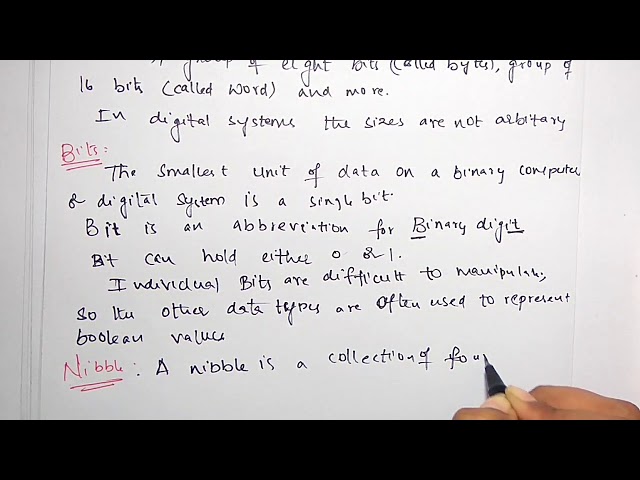 A group of eight bits (called bytes), group of
16 bits (called word) and more.
In digital systems the sizes are not arbitary
Bits:
The smallest unit of data on a binary compute
or digital system is a single bit.
Bit is an abbreviation for Binary digit
Bit can hold either 0 or 1.
Individual Bits are difficult to manipulate,
so the other data types are often used to represent
boolean values
Nibble: A nibble is a collection of fou